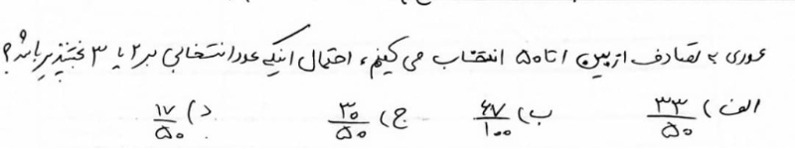 عددی به تصادف از بین ۱ تا ۵۰ انتخاب می کنیم، احتمال اینکه عدد انتخابی بر ۲ یا ۳ بخشپذیر باشد؟
الف) ۳۳/۵۰ ب) ۶۷/۱۰۰ ج) ۳۰/۵۰ د) ۱۷/۵۰